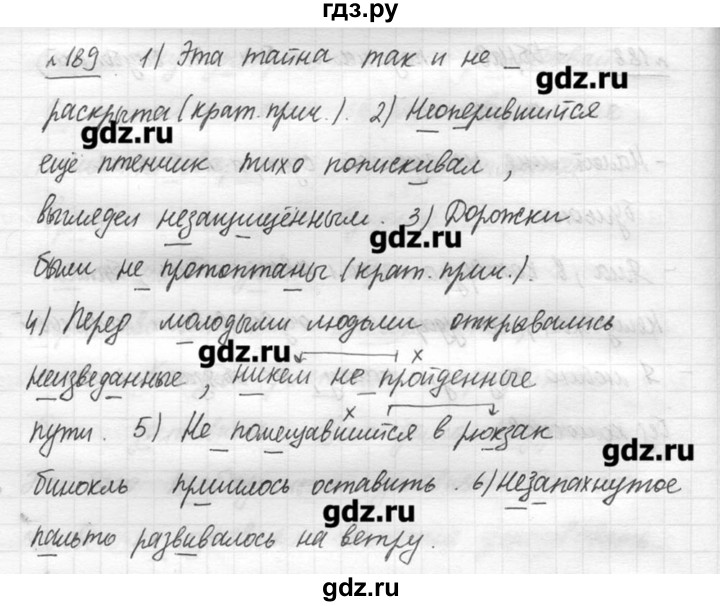 гдз.ру
№189 1) Эта тайна так и не
gdz.ru
раскрыта (крат. прич.). 2) Неоперившийся
gdz.ru
ещё птенчик тихо попискивал,
выглядел незащищённым. 3) Дорожки
gdz.ru
были не протоптаны (крат. прич.).
4) Перед молодыми людьми открывались
gdz.ru
х
неизведанные, никем не пройденные
х
пути. 5) Не помещавшийся в рюкзак
gdz.ru
бинокль пришлось оставить. 6) Незапахнутое
gdz.ru
пальто развивалось на ветру.
gdz.ru